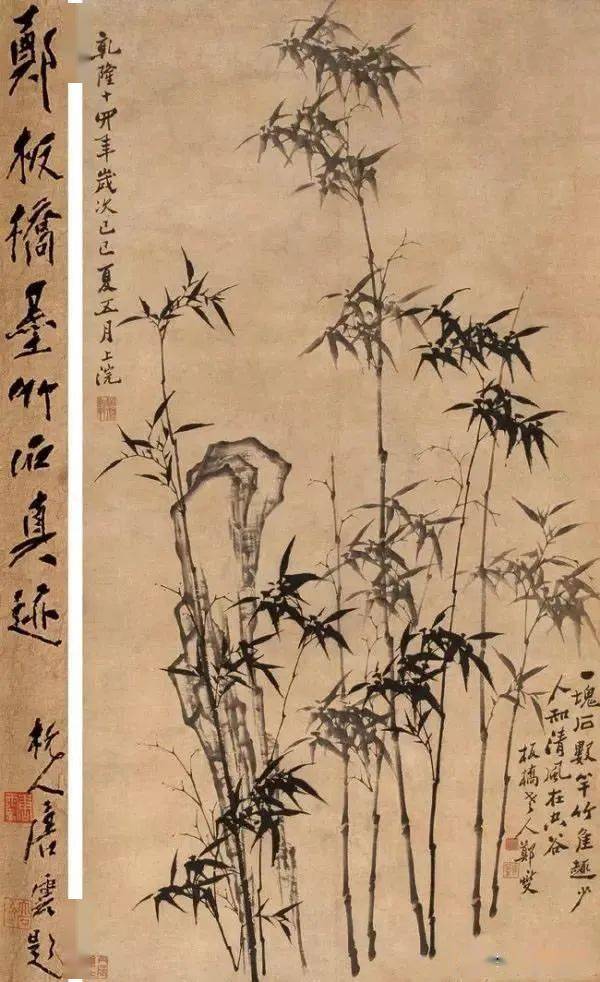 鄭板橋墨竹石真迹
杭人唐雲題
乾隆十四年歲次己巳夏五月上浣
一塊石數竿竹佳趣少
人知清風在空谷
板橋老人鄭燮